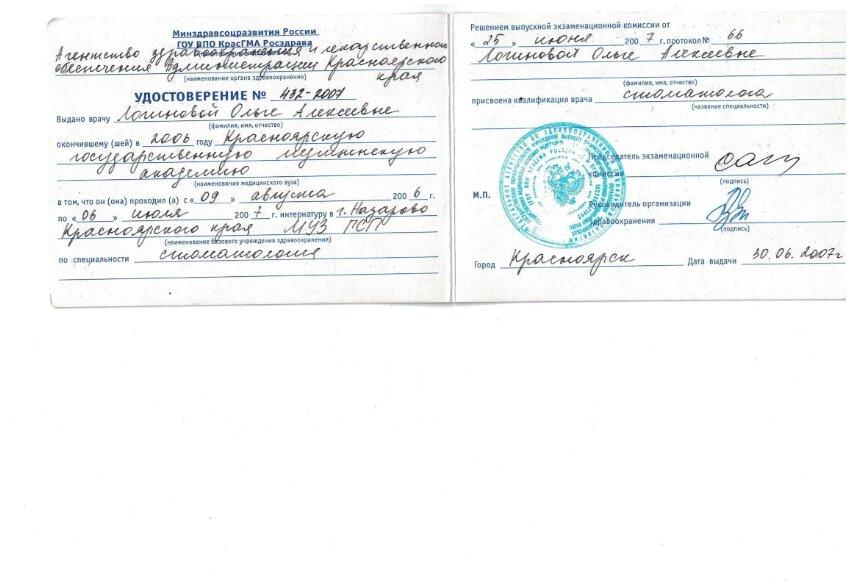 Минздравсоцразвития России
ГОУ ВПО КрасГМА Росздрава
Агентство здравоохранения и лекарственного
обеспечения Администрации Красноярского
края
(наименование органа здравоохранения)
УДОСТОВЕРЕНИЕ № 432-2007
Выдано врачу Логиновой Ольге Алексеевне
(фамилия, имя, отчество)
окончившему (шей) в 2006 году Красноярскую
государственную медицинскую
академию
(наименование медицинского вуза)
в том, что он (она) проходил (а) с « 09 » августа 200 6 г.
по « 06 » июля 200 7 г. интернатуру в г. Назарово
Красноярского края МУЗ ГСП
(наименование базового учреждения здравоохранения)
по специальности стоматология
Решением выпускной экзаменационной комиссии от
« 25 » июня 200 7 г. протокол № 66
Логиновой Ольге Алексеевне
(фамилия, имя, отчество)
присвоена квалификация врача стоматолога
(название специальности)
Председатель экзаменационной
комиссии
(подпись)
М.П.
Руководитель организации
здравоохранения
(подпись)
Город Красноярск Дата выдачи 30.06.2007г